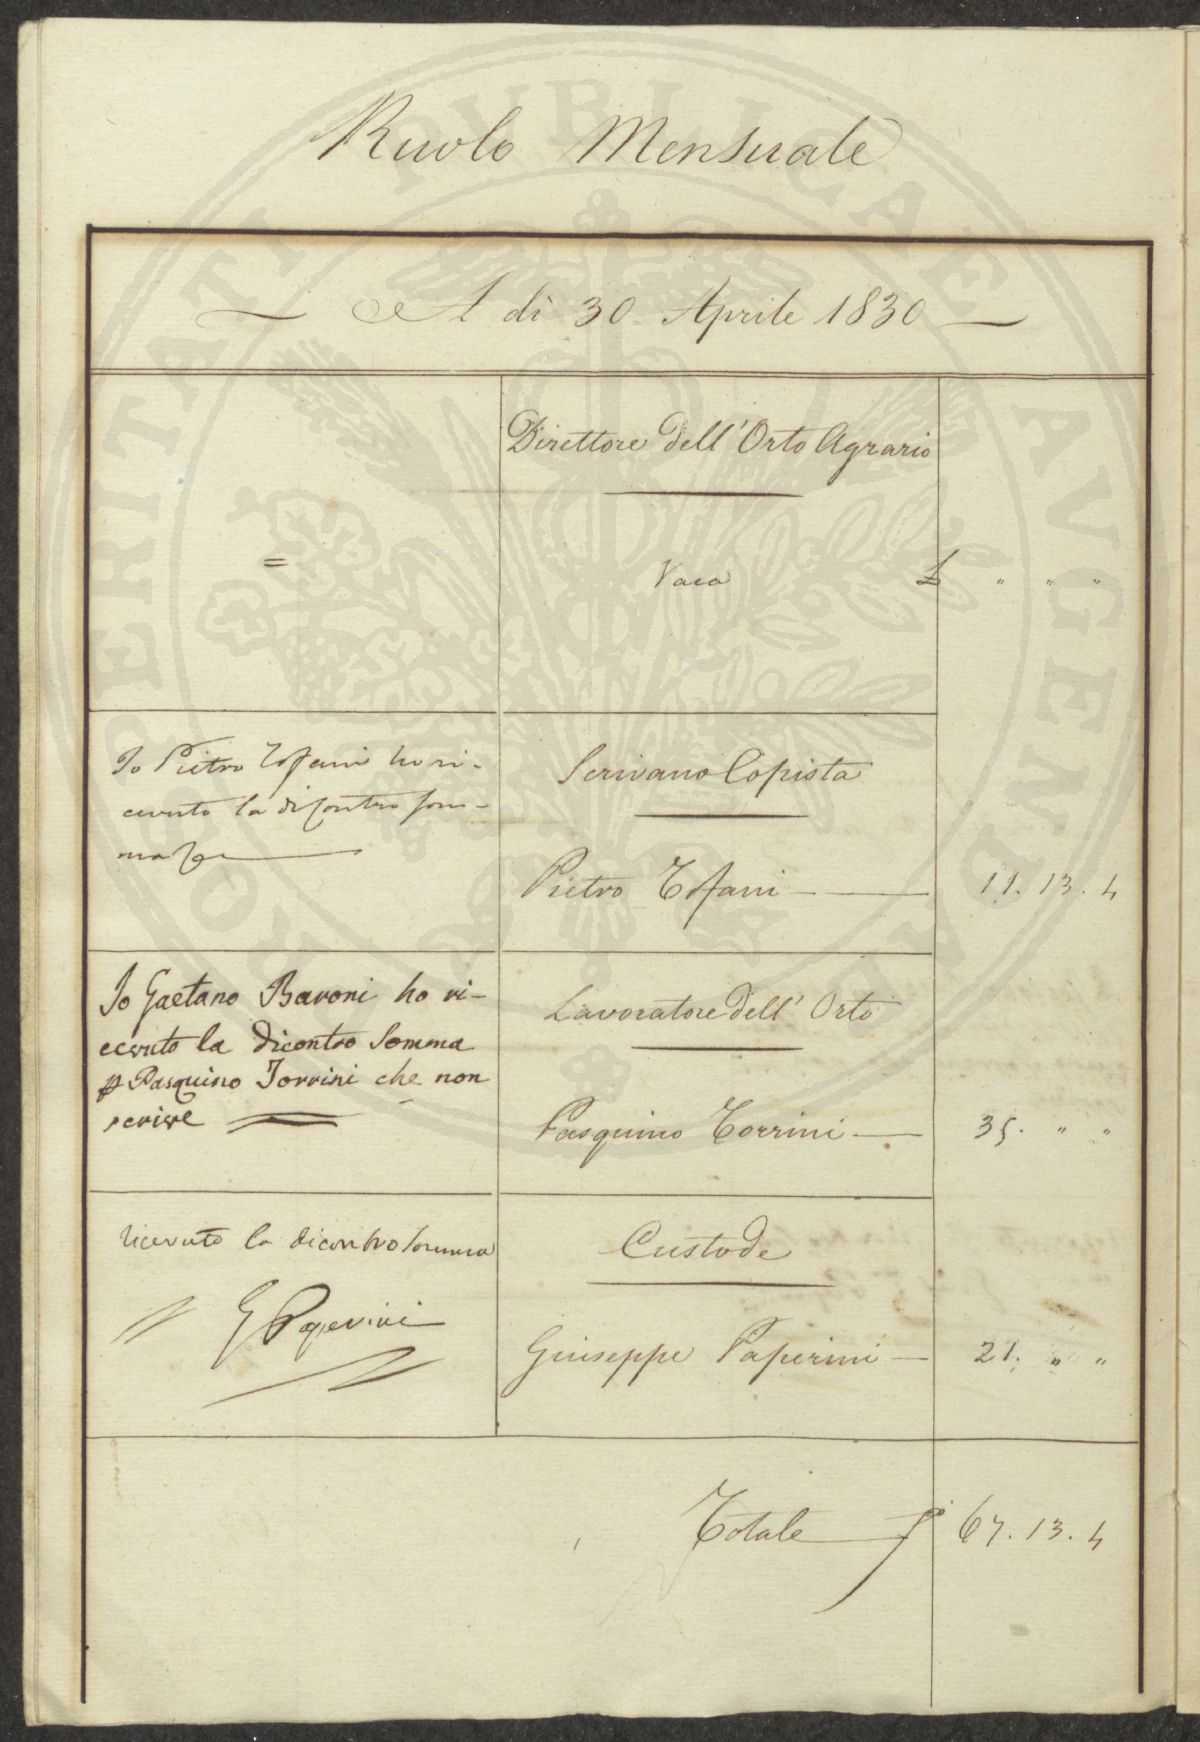 Ruolo Mensuale
A dì 30 Aprile 1830
Direttore dell'Orto Agrario
=
Vaca £ " " "
Io Pietro Tofani ho ri-
cevuto la di contro som-
ma
Scrivano Copista
Pietro Tofani 11. 13. 4
Io Gaetano Baroni ho ri-
cevuto la dicontro Somma
p Pasquino Torrini che non
scrive
Lavoratore dell'Orto
Pasquino Torrini 35. " "
ricevuto la dicontro Somma
G Paperini
Custode
Giuseppe Paperini 21. " "
Totale 67. 13. 4
PROSPERITATI PVBLICAE AVGENDAE